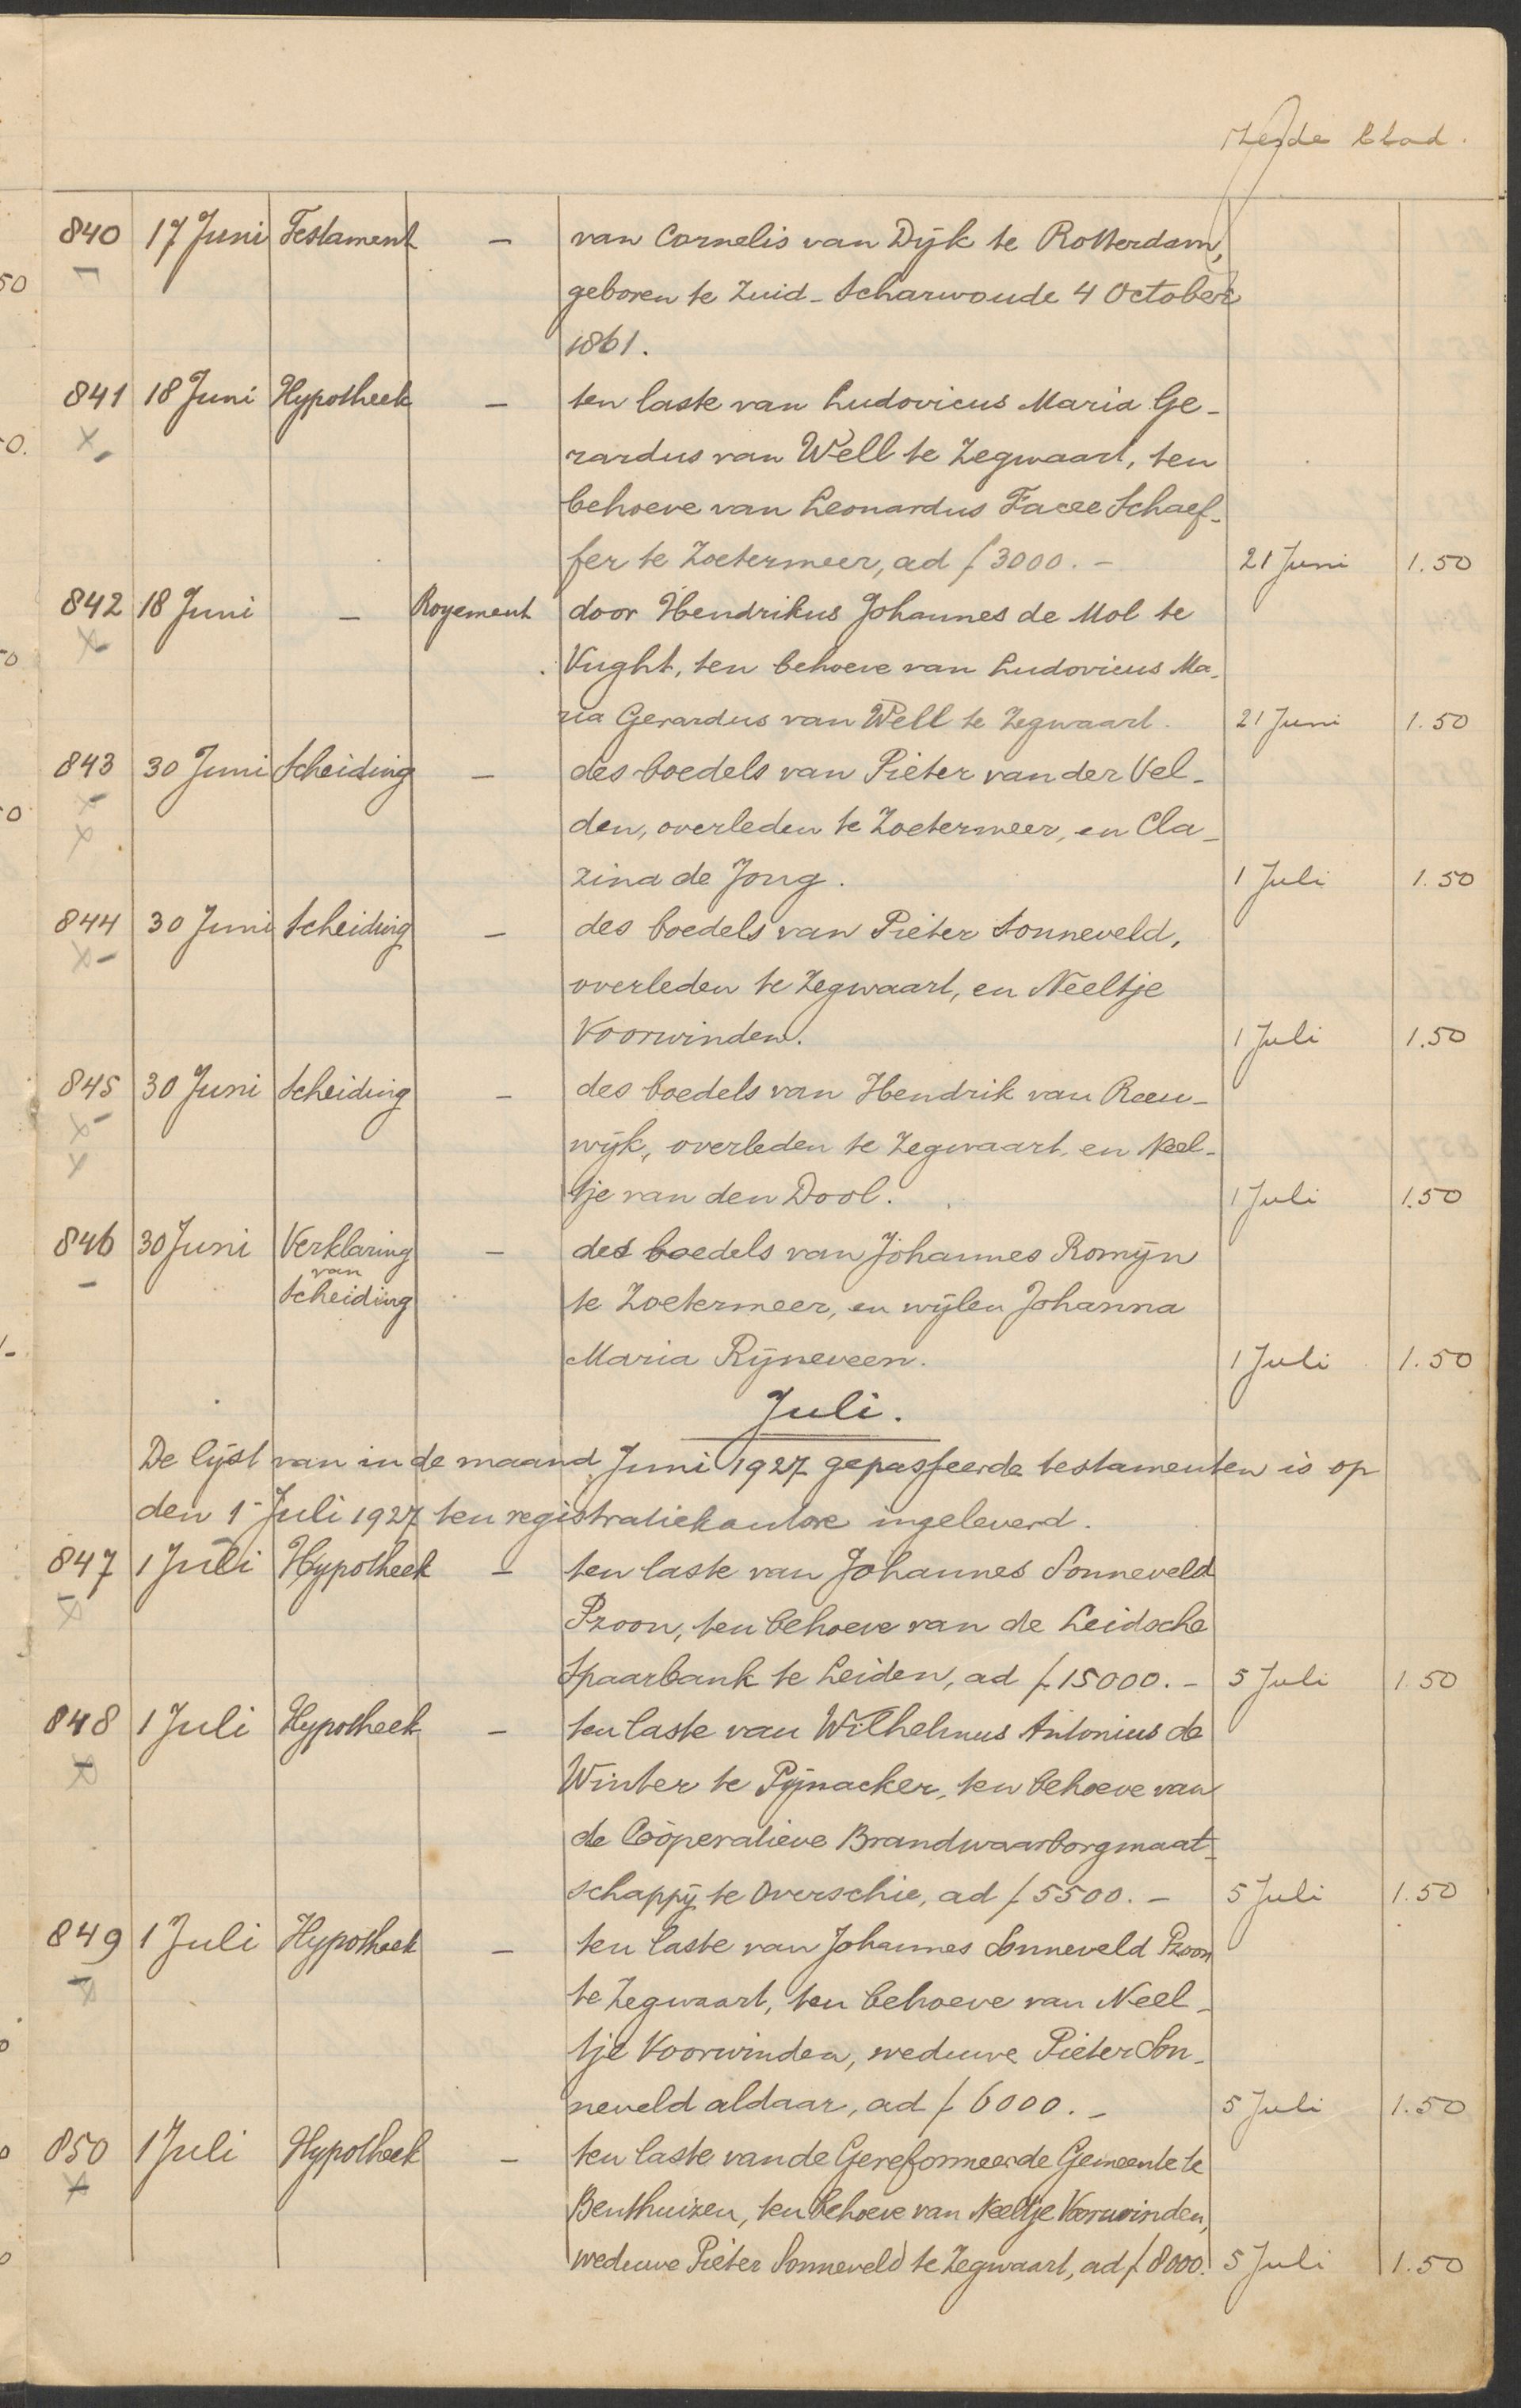 blad.
840 17 Juni Testament – van Cornelis van Dijk te Rotterdam,
geboren te Zuid-Scharwoude 4 October
1861.
841 18 Juni Hypotheek – ten laste van Ludovicus Maria Ge-
rardus van Well te Zegwaart, ten
behoeve van Leonardus Facee Schaef-
fer te Zoetermeer, ad ƒ 3000.- 21 Juni 1.50
842 18 Juni – Royement door Hendrikus Johannes de Mol te
Vught, ten behoeve van Ludovicus Ma-
ria Gerardus van Well te Zegwaart. 21 Juni 1.50
843 30 Juni Scheiding – des boedels van Pieter van der Vel-
den, overleden te Zoetermeer, en Cla-
zina de Jong. 1 Juli 1.50
844 30 Juni Scheiding – des boedels van Pieter Sonneveld,
overleden te Zegwaart, en Neeltje
Voorwinden. 1 Juli 1.50
845 30 Juni Scheiding – des boedels van Hendrik van Reeu-
wijk, overleden te Zegwaart, en Neel-
tje van den Dool. 1 Juli 1.50
846 30 Juni Verklaring – des boedels van Johannes Romijn
van
Scheiding te Zoetermeer, en wijlen Johanna
Maria Rijneveen. 1 Juli 1.50
Juli.
De lijst van in de maand Juni 1927 gepasseerde testamenten is op
den 1 Juli 1927 ten registratiekantore ingeleverd.
847 1 Juli Hypotheek – ten laste van Johannes Sonneveld
Pzoon, ten behoeve van de Leidsche
Spaarbank te Leiden, ad ƒ 15000.- 5 Juli 1.50
848 1 Juli Hypotheek – ten laste van Wilhelmus Antonius de
Winter te Pijnacker, ten behoeve van
de Coöperatieve Brandwaarborgmaat-
schappij te Overschie, ad ƒ 5500.- 5 Juli 1.50
849 1 Juli Hypotheek – ten laste van Johannes Sonneveld Pzoon
te Zegwaart, ten behoeve van Neel-
tje Voorwinden, weduwe Pieter Son-
neveld aldaar, ad ƒ 6000.- 5 Juli 1.50
850 1 Juli Hypotheek – ten laste van de Gereformeerde Gemeente te
Benthuizen, ten behoeve van Neeltje Voorwinden,
weduwe Pieter Sonneveld te Zegwaart, ad ƒ 8000. 5 Juli 1.50